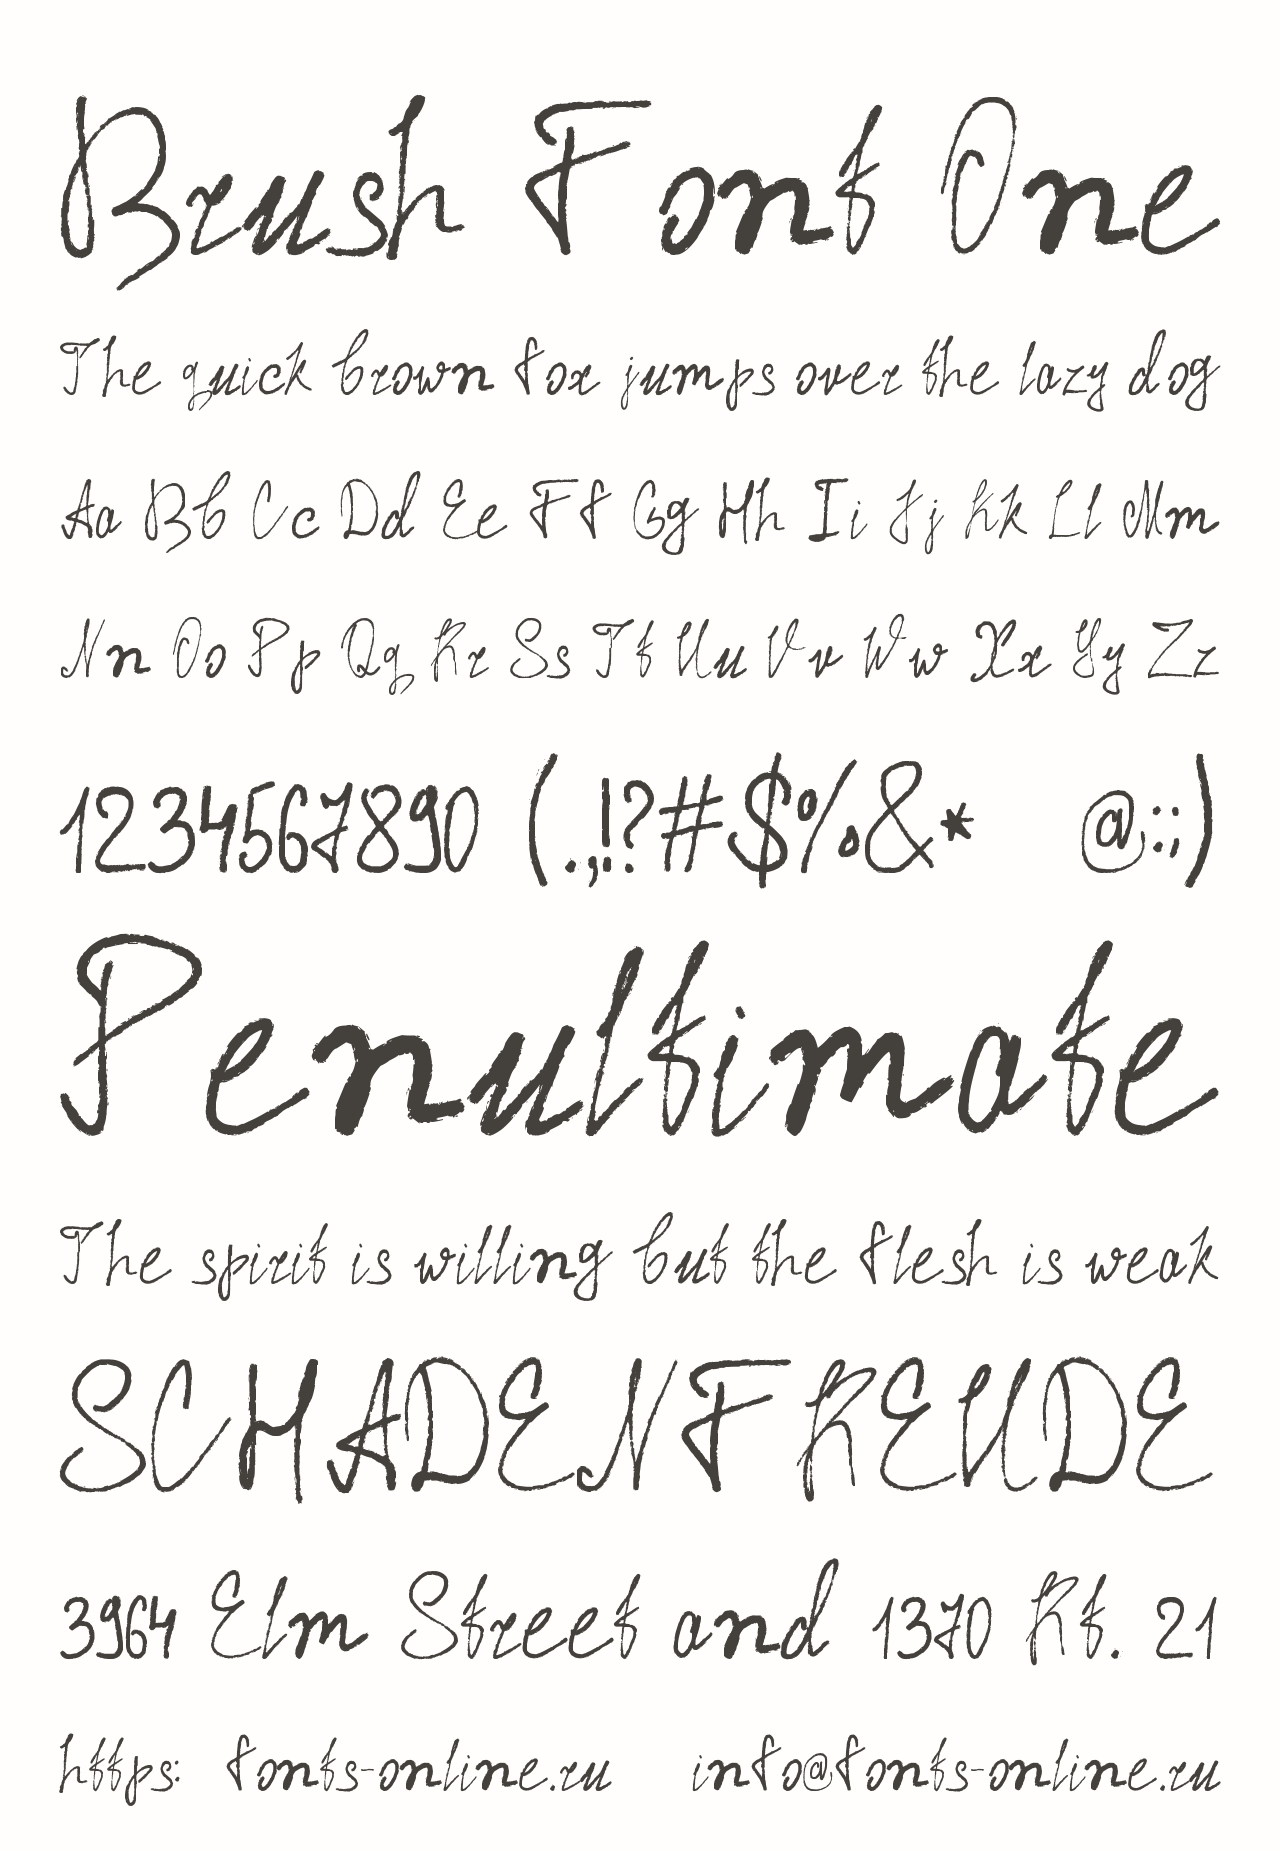 Brush Font One
The quick brown fox jumps over the lazy dog
Aa Bb Cc Dd Ee Ff Gg Hh Ii Jj Kk Ll Mm
Nn Oo Pp Qq Rr Ss Tt Uu Vv Ww Xx Yy Zz
1234567890 (.,!?#$%&* @:;)
Penultimate
The spirit is willing but the flesh is weak
SCHADENFREUDE
3964 Elm Street and 1370 Rt. 21
https: fonts-online.ru info@fonts-online.ru